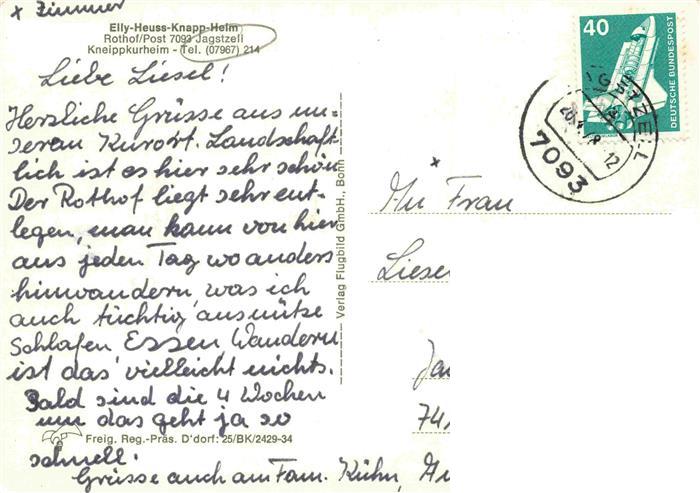 x Zimmer
Elly-Heuss-Knapp-Heim
Rothof/Post 7093 Jagstzell
Kneippkurheim - Tel. (07967) 214
Liebe Liesel!
Herzliche Grüsse aus un-
serem Kurort. Landschaft-
lich ist es hier sehr schön.
Der Rothof liegt sehr ent-
legen, man kann von hier
aus jeden Tag wo anders
hinwandern, was ich
auch tüchtig ausnütze
Schlafen, Essen, Wandern
ist das vielleicht nichts.
Bald sind die 4 Wochen
um das geht ja so
schnell.
Freig. Reg.-Präs. D'dorf: 25/BK/2429-34
Grüsse auch an Fam. Kühn,
Verlag Flugbild GmbH., Bonn
40
DEUTSCHE BUNDESPOST
GSTZELL
7093
x
An Frau
Liese
Ja
74